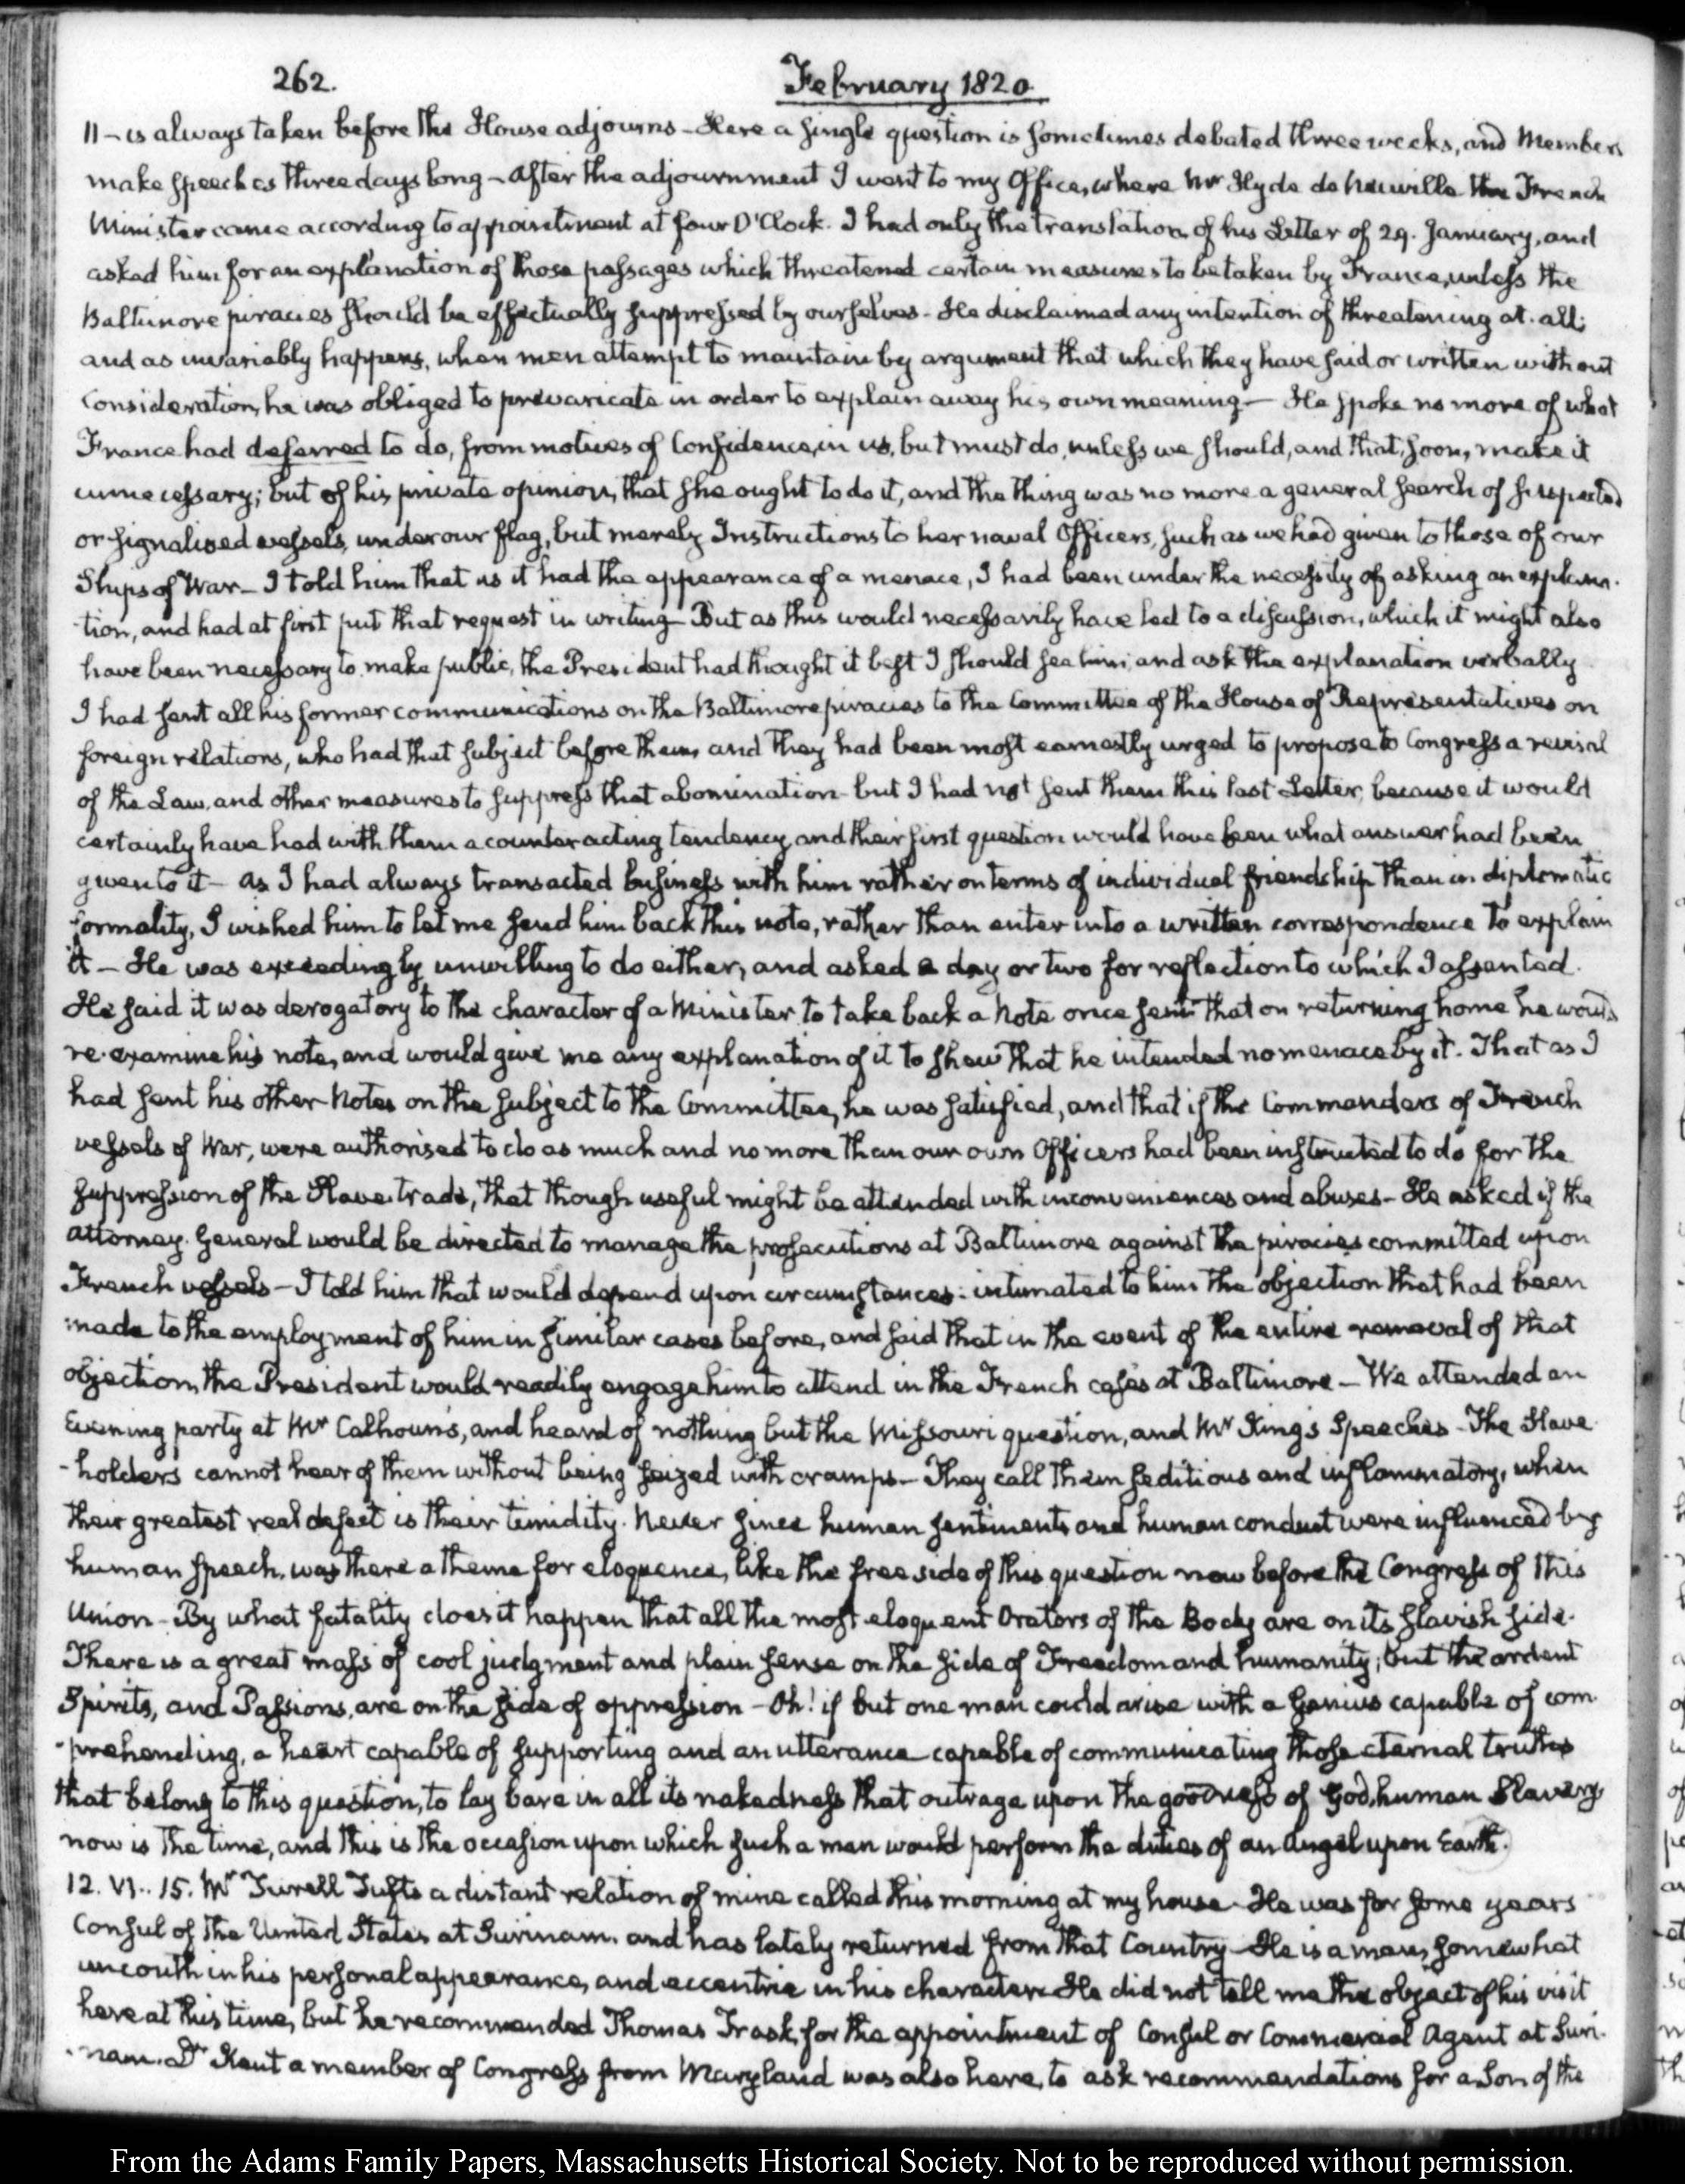 262.
February 1820.
11 – is always taken before the House adjourns – Here a single question is sometimes debated three weeks, and Members
make speeches three days long – After the adjournment I went to my Office, where Mr Hyde de Neuville the French
Minister came according to appointment at four O'Clock. I had only the translation of his Letter of 29. January, and
asked him for an explanation of those passages which threatened certain measures to be taken by France, unless the
Baltimore piracies should be effectually suppressed by ourselves – He disclaimed any intention of threatening at all;
and as invariably happens, when men attempt to maintain by argument that which they have said or written without
Consideration, he was obliged to prevaricate in order to explain away his own meaning – He spoke no more of what
France had deferred to do, from motives of Confidence in us, but must do, unless we should, and that, soon, make it
unnecessary; but of his private opinion, that she ought to do it, and the thing was no more a general search of suspected
or signalized vessels, under our flag, but merely Instructions to her naval Officers, such as we had given to those of our
Ships of War – I told him that as it had the appearance of a menace, I had been under the necessity of asking an explana-
tion, and had at first put that request in writing – But as this would necessarily have led to a discussion, which it might also
have been necessary to make public, the President had thought it best I should see him, and ask the explanation verbally
I had sent all his former communications on the Baltimore piracies to the Committee of the House of Representatives on
foreign relations, who had that subject before them, and they had been most earnestly urged to propose to Congress a revisal
of the Law, and other measures to suppress that abomination – but I had not sent them this last Letter, because it would
certainly have had with them a counteracting tendency, and their first question would have been what answer had been
given to it – As I had always transacted business with him rather on terms of individual friendship than in diplomatic
formality, I wished him to let me send him back this note, rather than enter into a written correspondence to explain
it – He was exceedingly unwilling to do either, and asked a day or two for reflection to which I assented.
He said it was derogatory to the character of a Minister to take back a Note once sent – That on returning home he would
re-examine his note, and would give me any explanation of it to shew that he intended no menace by it. That as I
had sent his other Notes on the subject to the Committee, he was satisfied, and that if the Commanders of French
vessels of War, were authorised to do as much and no more than our own Officers had been instructed to do for the
suppression of the Slave trade, that though useful might be attended with inconveniences and abuses – He asked if the
Attorney General would be directed to manage the prosecutions at Baltimore against the piracies committed upon
French vessels – I told him that would depend upon circumstances: intimated to him the objection that had been
made to the employment of him in similar cases before, and said that in the event of the entire removal of that
objection, the President would readily engage him to attend in the French cases at Baltimore – We attended an
Evening party at Mr Calhoun's, and heard of nothing but the Missouri question, and Mr King's Speeches – The Slave
-holders cannot hear of them without being seized with cramps – They call them seditious and inflammatory, when
their greatest real defect is their timidity. Never since human sentiments and human conduct were influenced by
human speech, was there a theme for eloquence, like the free side of this question now before the Congress of this
Union – By what fatality does it happen that all the most eloquent Orators of the Body are on its slavish side.
There is a great mass of cool judgment and plain sense on the side of Freedom and humanity; but the ardent
Spirits, and Passions, are on the side of oppression – Oh! if but one man could arise with a Genius capable of com-
-prehending, a heart capable of supporting and an utterance capable of communicating those eternal truths
that belong to this question, to lay bare in all its nakedness that outrage upon the goodness of God, human Slavery,
now is the time, and this is the occasion upon which such a man would perform the duties of an Angel upon Earth.
12. VI.. 15. Mr Turell Tufts a distant relation of mine called this morning at my house – He was for some years
Consul of the United States at Surinam, and has lately returned from that Country – He is a man, somewhat
uncouth in his personal appearance, and eccentric in his character – He did not tell me the object of his visit
here at this time, but he recommended Thomas Trask, for the appointment of Consul or Commercial Agent at Suri-
-nam. Dr Kent a member of Congress from Maryland was also here, to ask recommendations for a Son of the
From the Adams Family Papers, Massachusetts Historical Society. Not to be reproduced without permission.